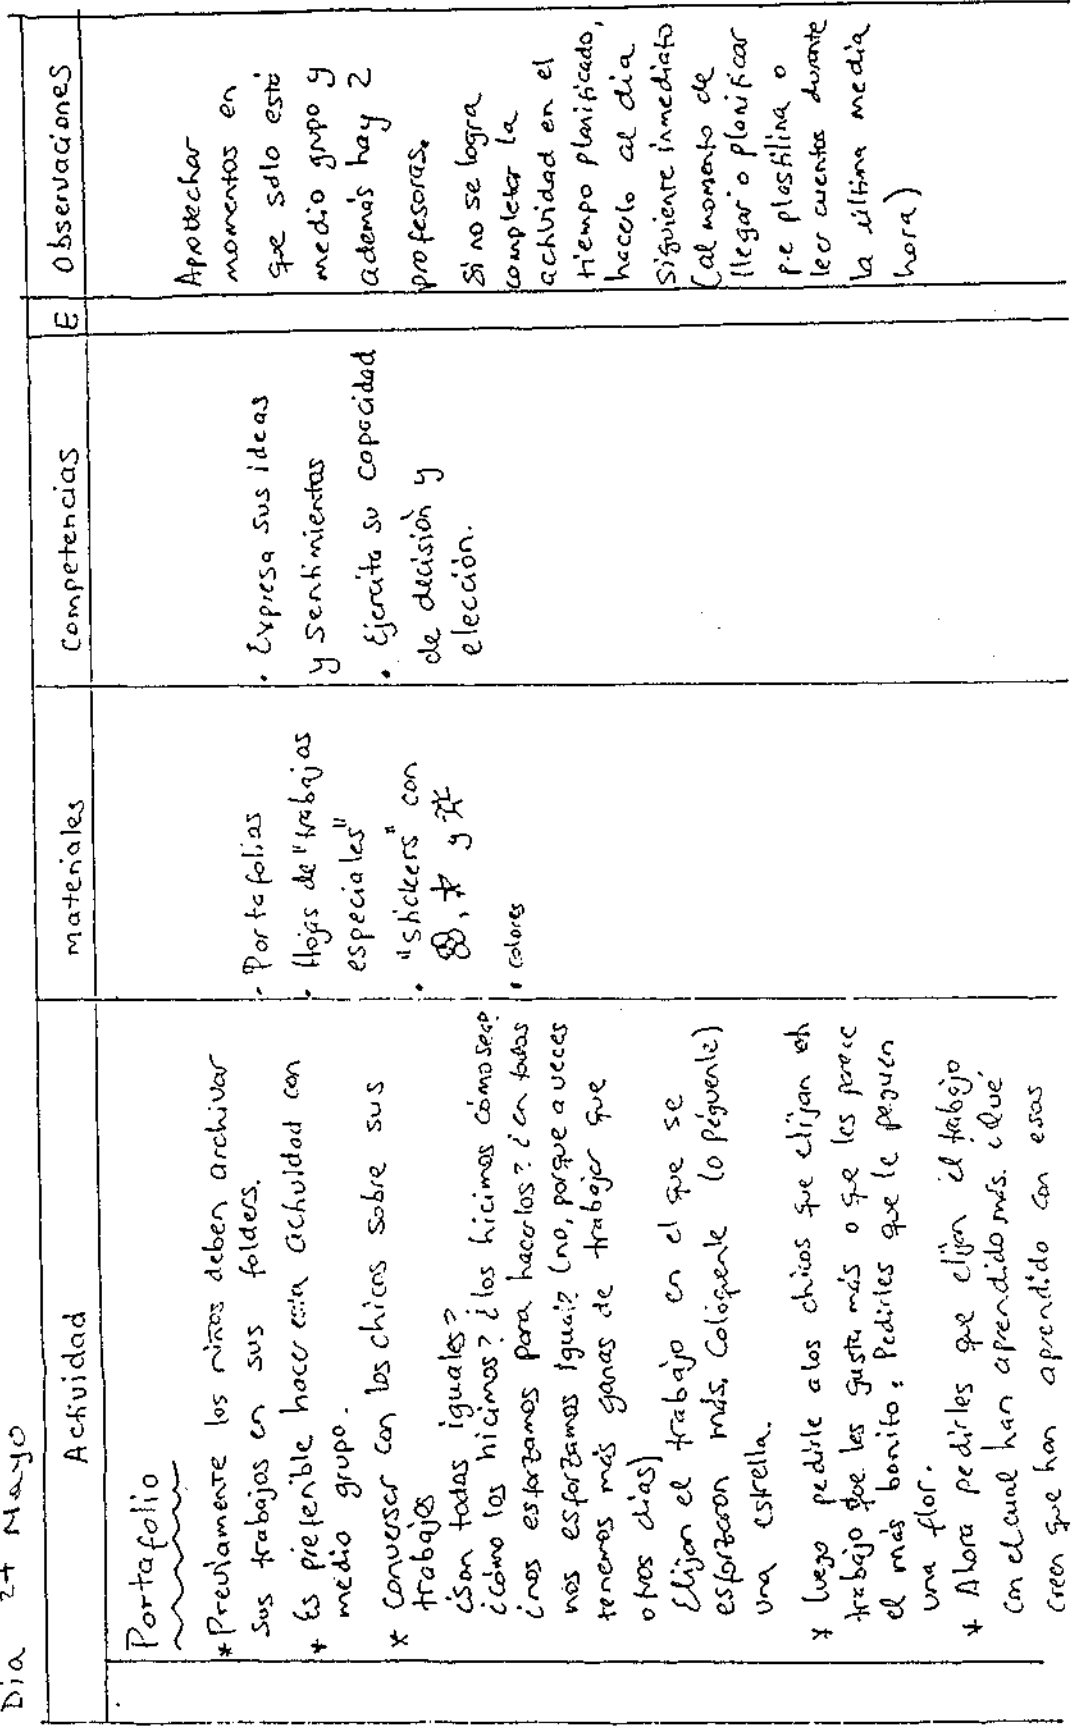 Dia 27 Mayo
Actividad
Portafolio
* Previamente los niños deben archivar
sus trabajos en sus folders.
* Es preferible hacer esta actividad con
medio grupo.
* Conversar con los chicos sobre sus
trabajos
¿Son todos iguales?
¿cómo los hicimos? ¿los hicimos cómo sea?
¿nos esforzamos para hacerlos? ¿en todos
nos esforzamos igual? (no, porque a veces
tenemos más ganas de trabajar que
otros días)
Elijan el trabajo en el que se
esforzaron más. Colóquenle (o péguenle)
una estrella.
* luego pedirle a los chicos que elijan
trabajo que les guste más o que les parece
el más bonito. Pedirles que le peguen
una flor.
* Ahora pedirles que elijan el trabajo
con el cual han aprendido más. ¿Qué
creen que han aprendido con esos
materiales
· Portafolios
· Hojas de "trabajos
especiales"
· "stickers" con
, y
· colores
Competencias
· Expresa sus ideas
y sentimientos
· Ejercita su capacidad
de decisión y
elección.
E
Observaciones
Aprovechar
momentos en
que sólo está
medio grupo y
además hay 2
profesoras.
Si no se logra
completar la
actividad en el
tiempo planificado,
hacerlo al día
siguiente inmediato
(al momento de
llegar o planificar
p.e plastilina o
leer cuentos durante
la última media
hora)